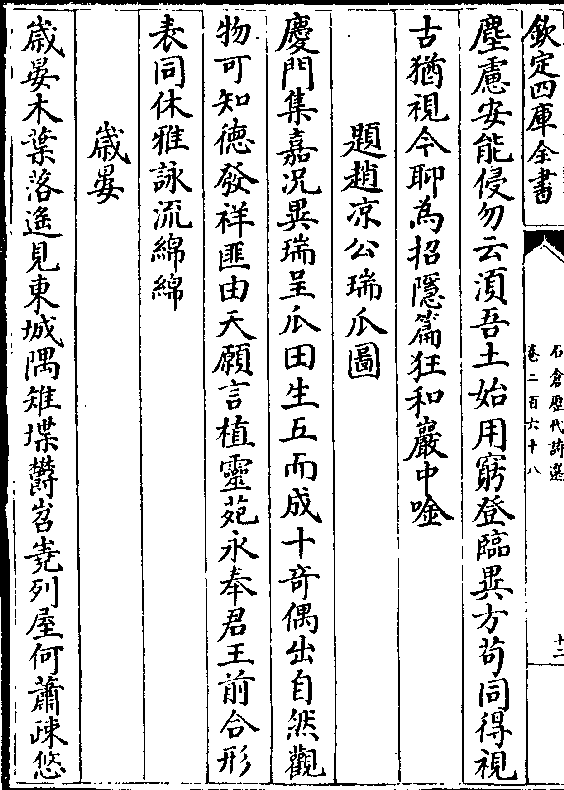 欽定四庫全書
石倉歷代詩選
卷二百六十八
十二
塵慮安能侵勿云湏吾土始用窮登臨異方茍同得視
古猶視今聊為招隱篇狂和巖中唫
題趙凉公瑞瓜圖
慶門集嘉况異瑞呈瓜田生五而成十竒偶出自然觀
物可知徳發祥匪由天願言植靈苑永奉君王前合形
表同休雅詠流綿綿
歲晏
歲晏木葉落遥見東城隅雉堞欝岧嶤列屋何蕭疎悠